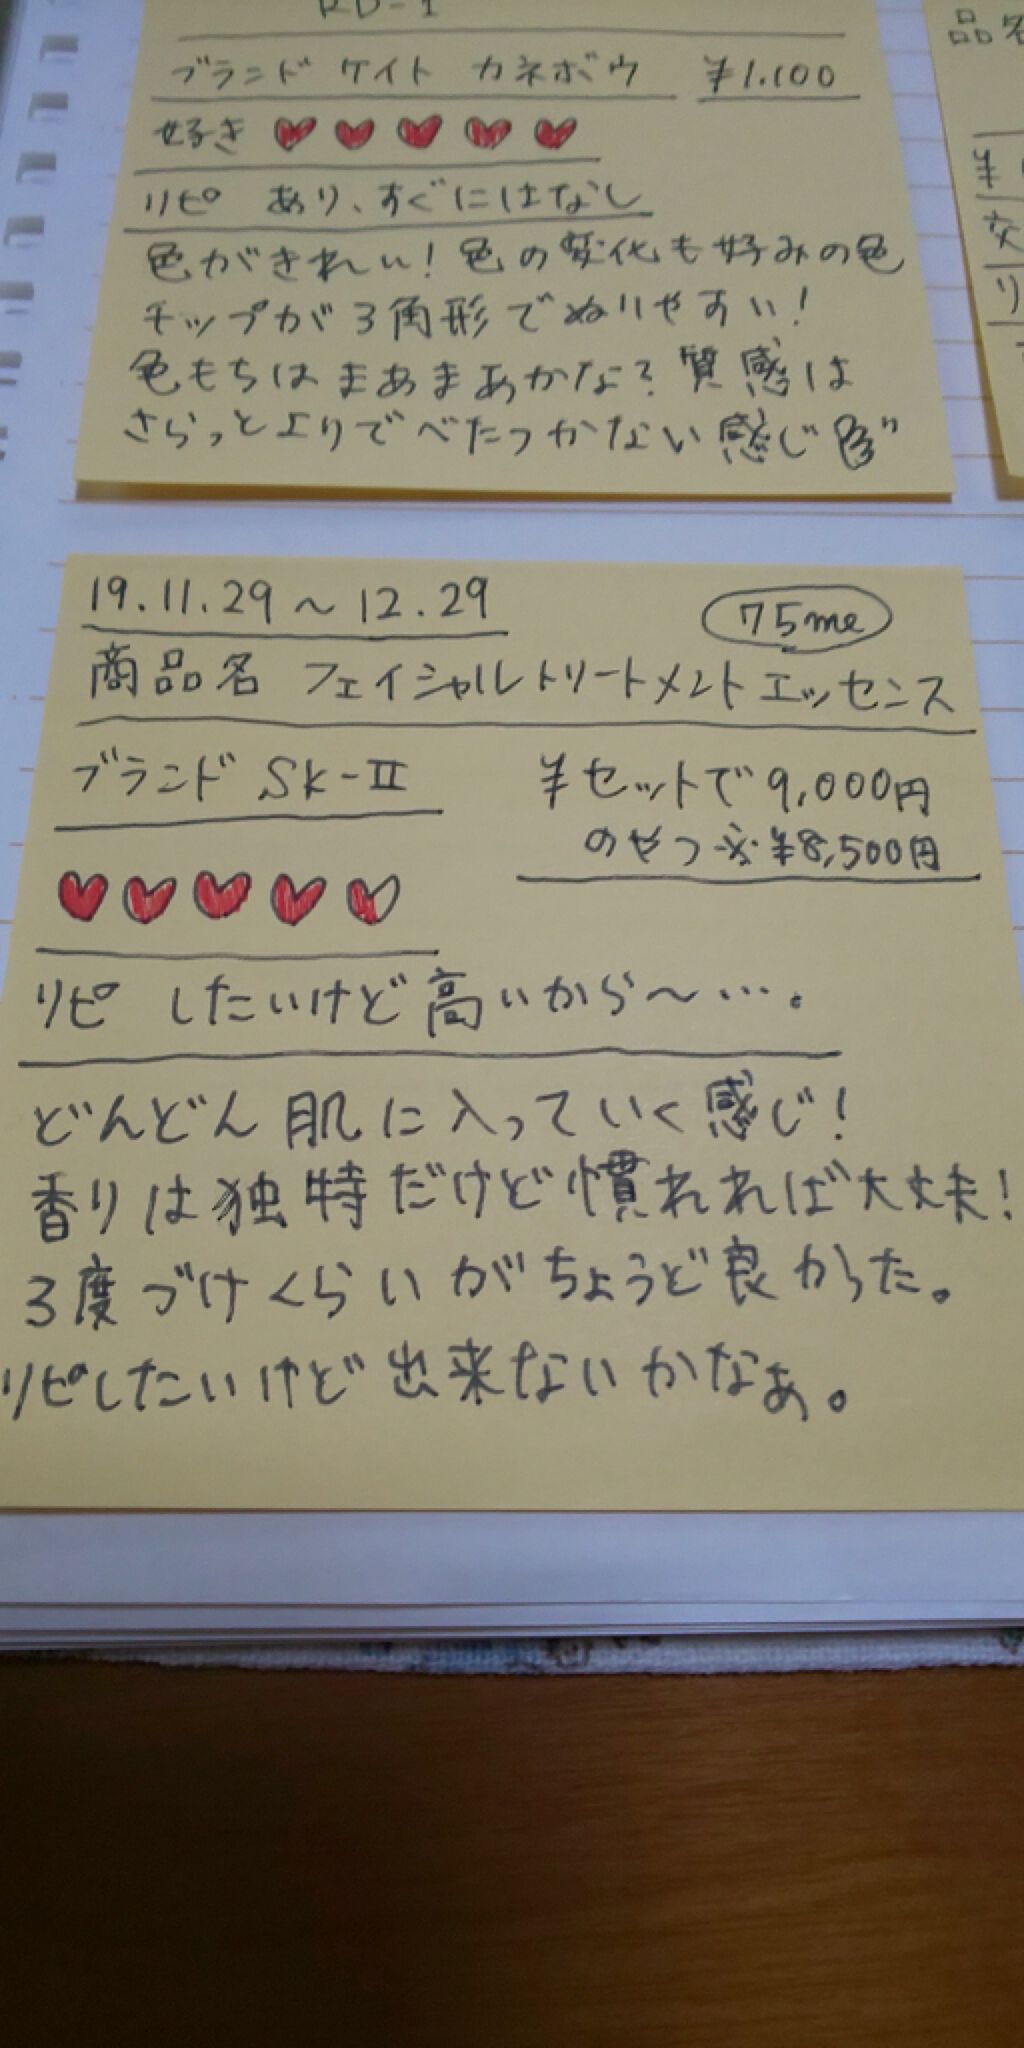 RD-1
ブランド ケイト カネボウ ¥1.100
好き
リピ あり、すぐにはなし
色がきれい!色の変化も好みの色
チップが3角形でぬりやすい!
色もちはまあまあかな?質感は
さらっとよりでべたつかない感じ
品名
¥
リ
19.11.29~12.29 75ml
商品名 フェイシャルトリートメントエッセンス
ブランド SK-II ¥セットで9,000円
のやつ ※¥8,500円
リピ したいけど高いから~…。
どんどん肌に入っていく感じ!
香りは独特だけど慣れれば大丈夫!
3度づけくらいがちょうど良かった。
リピしたいけど出来ないかなぁ。